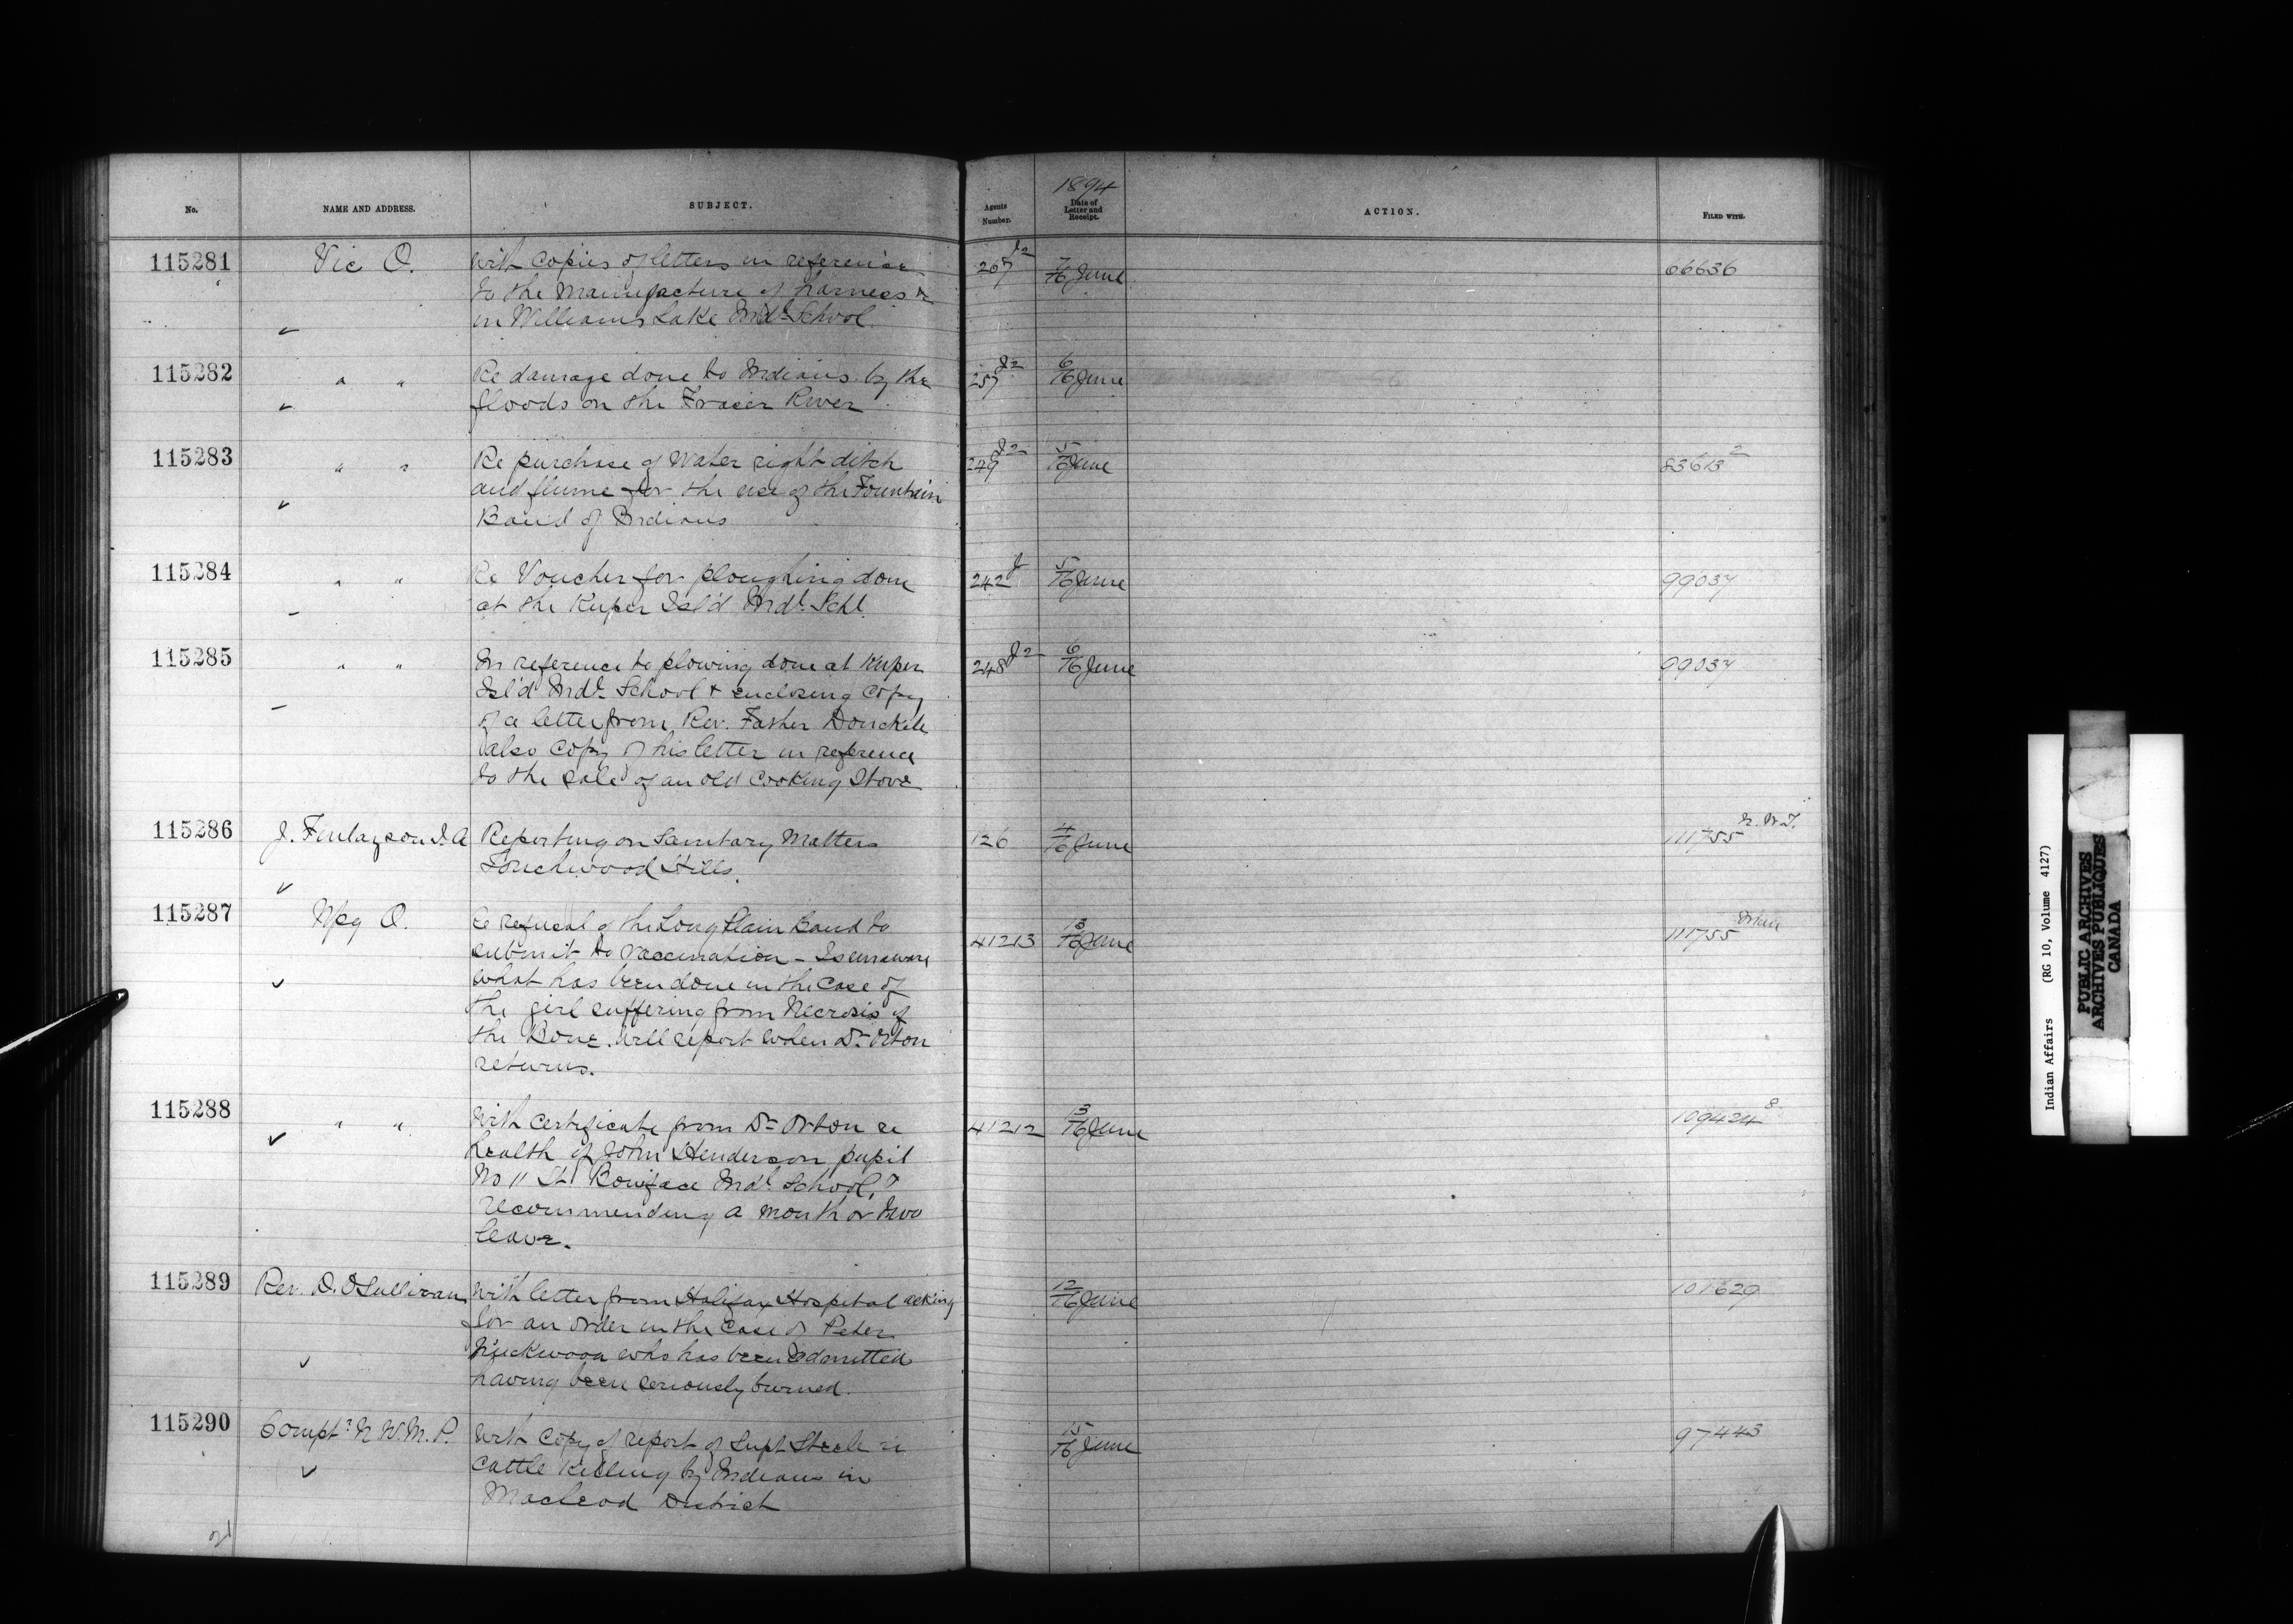 No.
NAME AND ADDRESS.
SUBJECT.
Agents Number.
1894
Date of Letter and Receipt.
ACTION.
FILED WITH.
115281 Vic O. With copies of letters in reference
to the manufacture of harness &c
in Williams Lake Indl School.
J2
7/16 June 66636
115282 " " Re damage done to Indians by the
floods on the Fraser River
257 J2 6/16 June
115283 " " Re purchase of Water right ditch
and flume for the use of the Fountain
Band of Indians
249 J2 5/16 June 83613 2
115284 " " Re Voucher for ploughing done
at the Kuper Isl'd Indl. Schl.
242 J 5/16 June 99037
115285 " " In reference to plowing done at Kuper
Isl'd Indl School & enclosing copy
of a letter from Rev. Father Donckele
also copy of his letter in reference
to the sale of an old cooking Stove
248 J2 6/16 June 99037
115286 J. Finlayson I.A Reporting on Sanitary Matters
Touchwood Hills.
126 4/16 June 111755 N.W.T.
115287 Wpg O. Re refusal of the Long Plain Band to
submit to vaccination - Is unaware
what has been done in the case of
the girl suffering from Necrosis of
the Bone. Will report when Dr Orton
returns.
41213 13/16 June 111755
115288 " " With certificate from Dr Orton re
health of John Henderson pupil
No 11 St. Boniface Indl School,
recommending a month or two
leave.
41212 13/16 June 109424 8
115289 Rev. D. O'Sullivan With letter from Halifax Hospital asking
for an order in the case of Peter
who has been admitted
having been seriously burned.
12/16 June 101629
115290 Compt r N.W.M.P. With copy of report of Supt Steele re
cattle killing by Indians in
Macleod District
15/16 June 97443
Indian Affairs (RG 10, Volume 4127)
PUBLIC ARCHIVES
ARCHIVES PUBLIQUES
CANADA